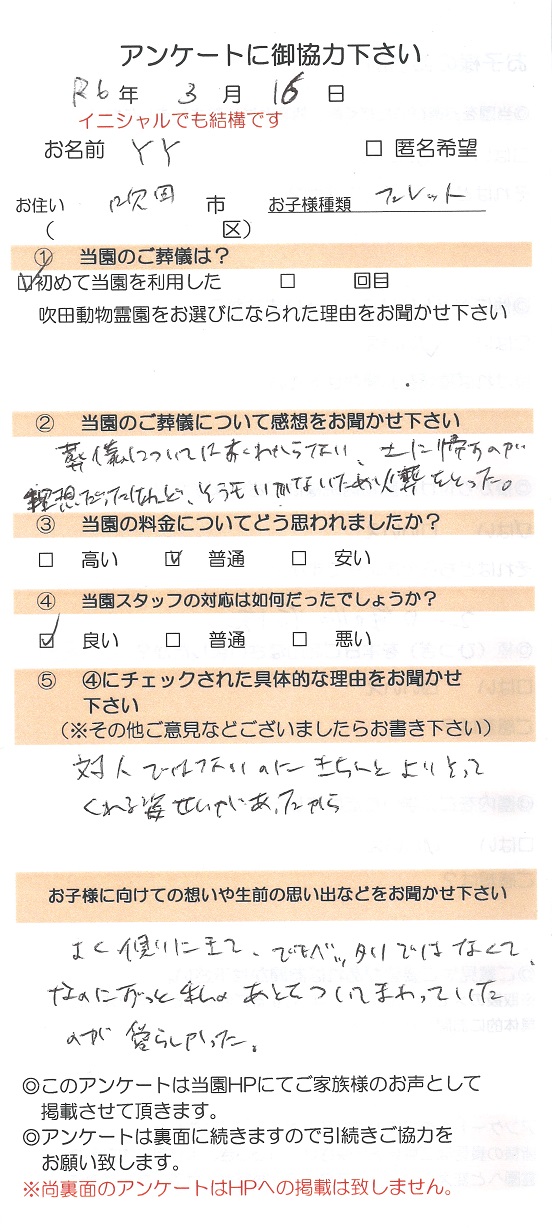 アンケートに御協力下さい
R6年 3月 16日
イニシャルでも結構です
お名前 YY □ 匿名希望
お住い 吹田 市 お子様種類 フェレット
( 区)
① 当園のご葬儀は?
☑初めて当園を利用した □ 回目
吹田動物霊園をお選びになられた理由をお聞かせ下さい
② 当園のご葬儀について感想をお聞かせ下さい
葬儀についてはよくわからない、土に帰るのが
理想だったけれど、そうもいかないため火葬をとった。
③ 当園の料金についてどう思われましたか?
□ 高い ☑ 普通 □ 安い
④ 当園スタッフの対応は如何だったでしょうか?
☑ 良い □ 普通 □ 悪い
⑤ ④にチェックされた具体的な理由をお聞かせ
下さい
(※その他ご意見などございましたらお書き下さい)
対人ではないのにきちんとよりそって
くれる姿せいがあったから
お子様に向けての想いや生前の思い出などをお聞かせ下さい
よく傍りに来て、でもベッタリではなくて、
なのにずっと私のあとをついてまわっていた
のが愛らしかった。
◎このアンケートは当園HPにてご家族様のお声として
掲載させて頂きます。
◎アンケートは裏面に続きますので引続きご協力を
お願い致します。
※尚裏面のアンケートはHPへの掲載は致しません。